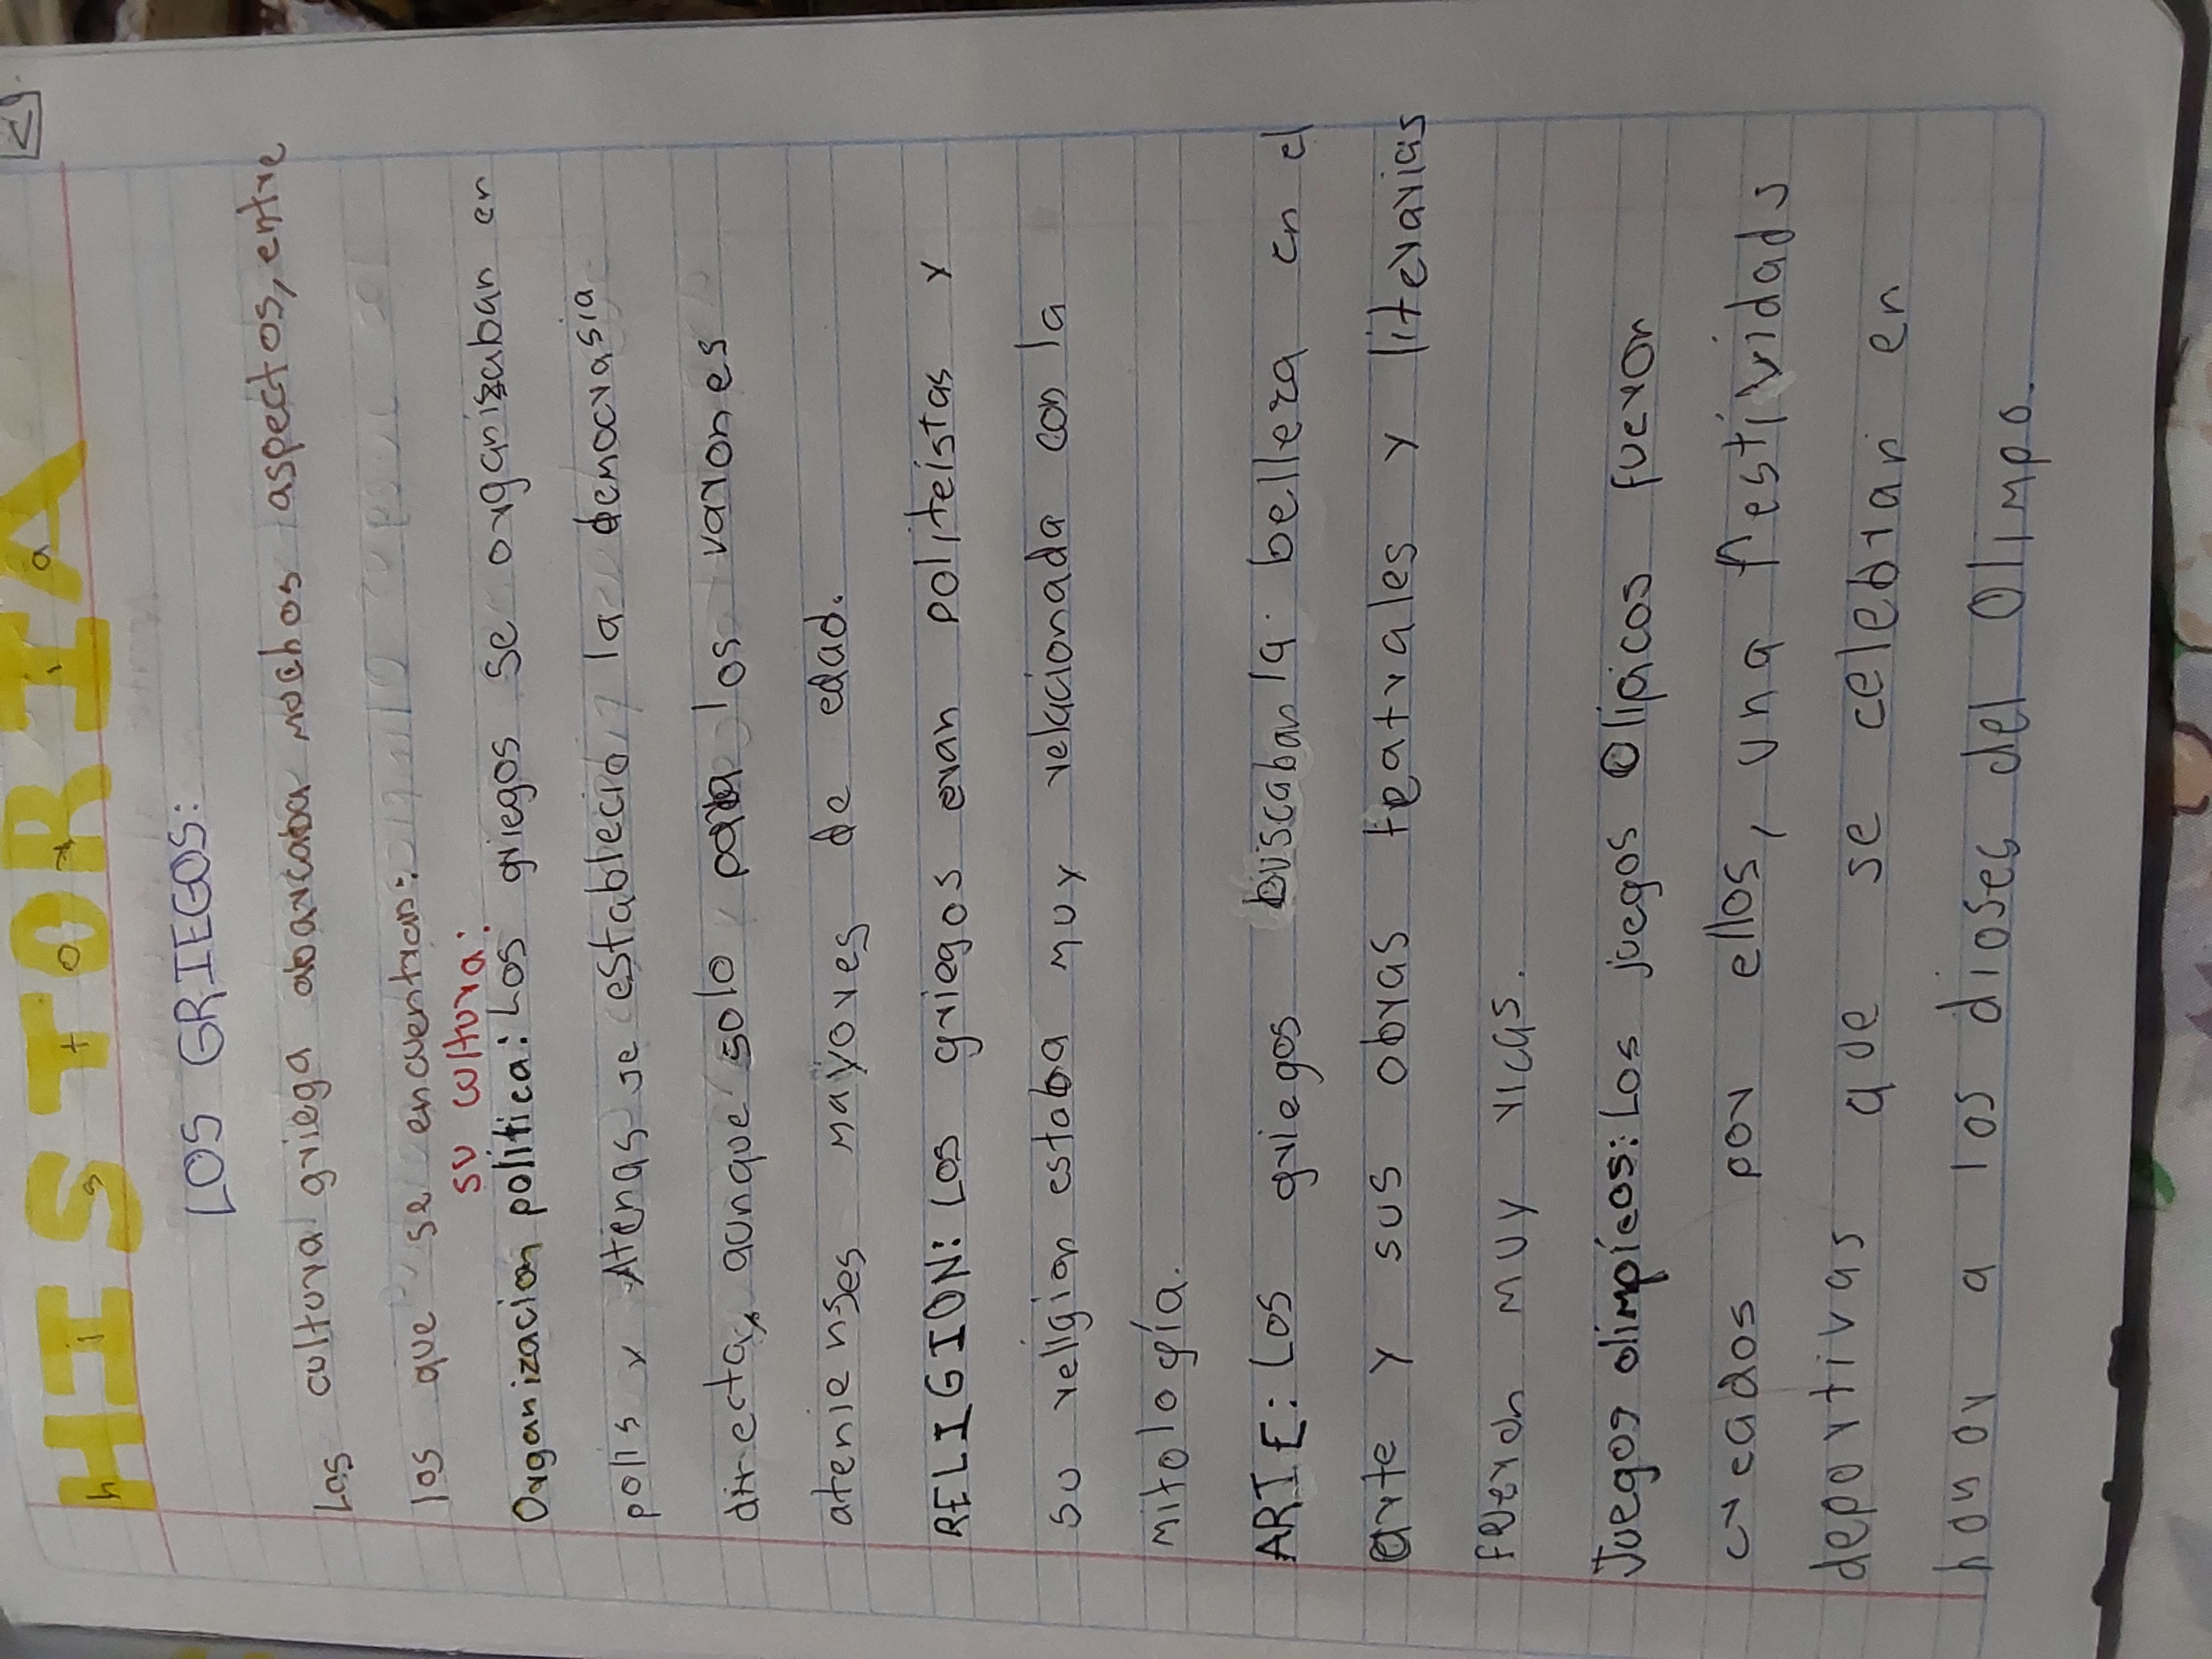 HISTORIA
LOS GRIEGOS:
Las cultura griega abarcaba muchos aspectos, entre
los que se encuentran:
su cultura:
Organizacion politica: Los griegos se organizaban en
polis y Atenas se estableció, la democrasia
directa, aunque solo para los varones
atenienses mayores de edad.
RELIGION: Los griegos eran politeístas y
su religion estaba muy relacionada con la
mitología.
ARTE: Los griegos buscaban la belleza en el
arte y sus obras teatrales y literarias
fueron muy ricas.
Juegos olimpícos: Los juegos Olipicos fueron
creados por ellos, una festividads
deportivas que se celebran en
honor a los dioses del Olimpo.